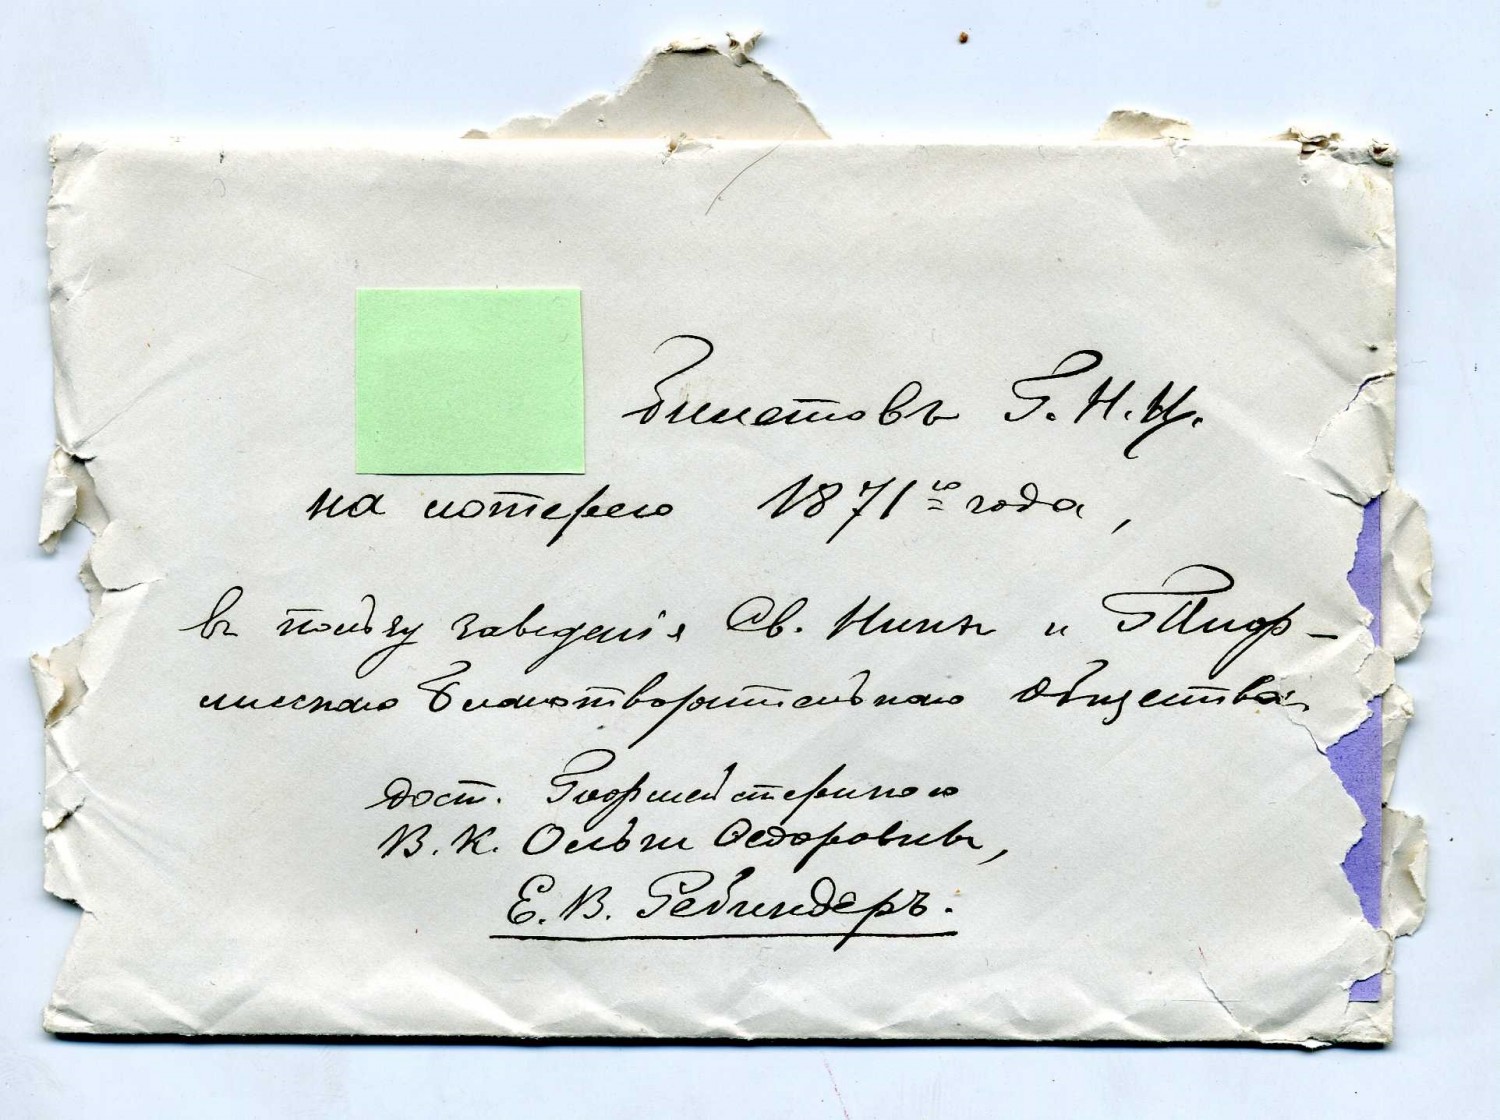 Билетовъ Г.Н.И.
на лотерею 1871го года,
въ пользу заведенія Св. Нины и Тиф-
лисскаго Благотворительнаго Общества.
дост. Гофмейстериною
В.К. Ольги Ѳедоровны,
Е.В. Ребиндеръ.